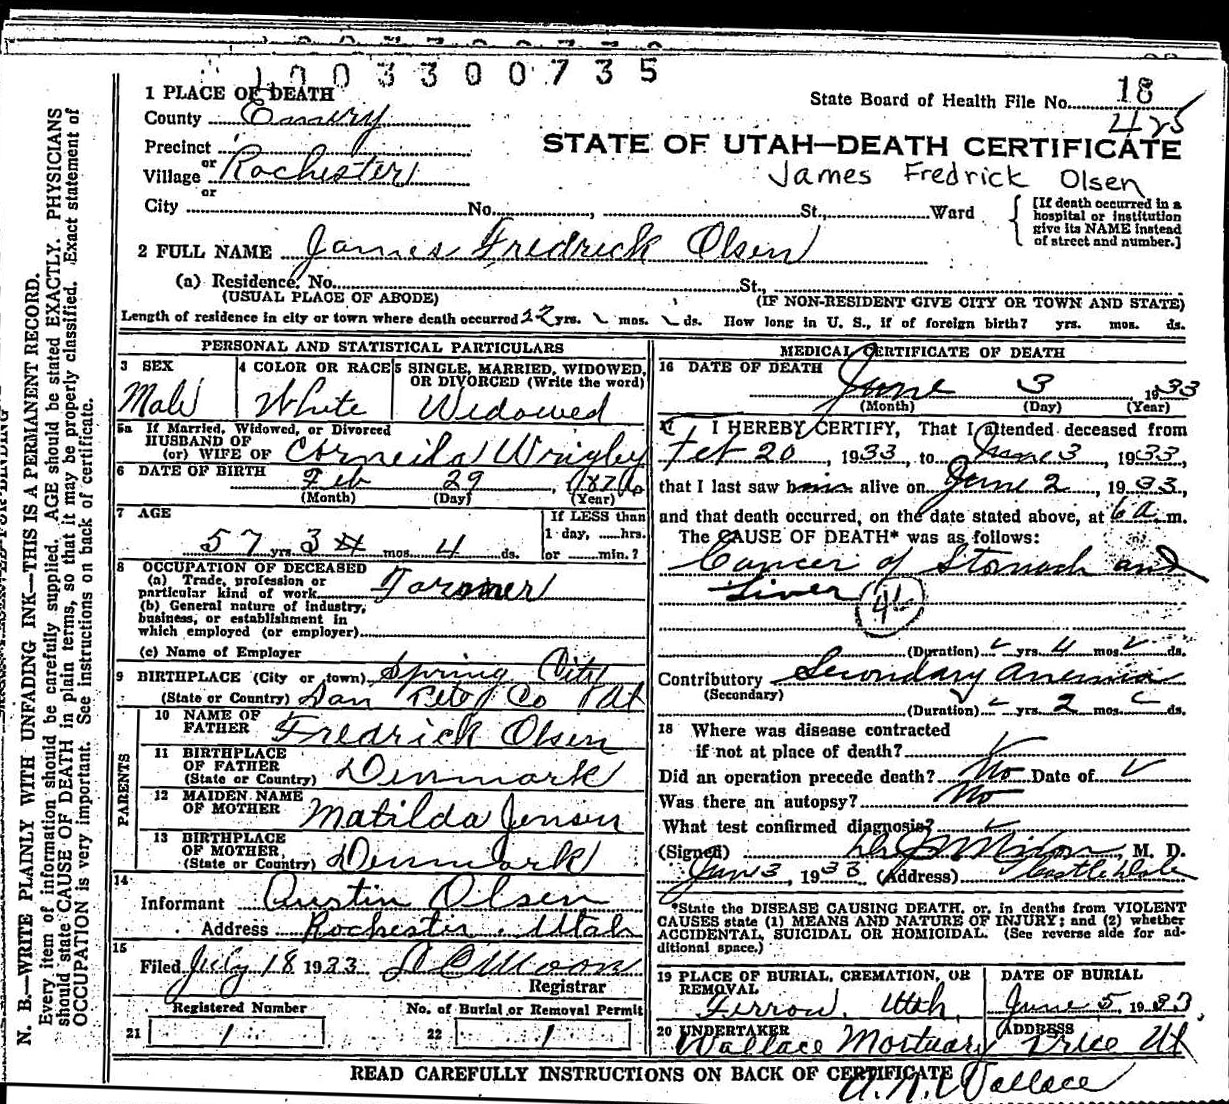 1003300735
1 PLACE OF DEATH
State Board of Health File No. 18
County Emery
425
Precinct
STATE OF UTAH—DEATH CERTIFICATE
or
Village Rochester
James Fredrick Olsen
or
City No. , St., Ward
[If death occurred in a hospital or institution give its NAME instead of street and number.]
2 FULL NAME James Fredrick Olsen
(a) Residence. No. St.,
(USUAL PLACE OF ABODE) (IF NON-RESIDENT GIVE CITY OR TOWN AND STATE)
Length of residence in city or town where death occurred 22 yrs. mos. ds. How long in U. S., if of foreign birth? yrs. mos. ds.
PERSONAL AND STATISTICAL PARTICULARS
3 SEX
Male
4 COLOR OR RACE
White
5 SINGLE, MARRIED, WIDOWED,
OR DIVORCED (Write the word)
Widowed
5a If Married, Widowed, or Divorced
HUSBAND OF
(or) WIFE OF Corneila Wrigley
6 DATE OF BIRTH Feb 29, 1876
(Month) (Day) (Year)
7 AGE
57 yrs. 3 mos. 4 ds.
If LESS than
1 day, hrs.
or min.?
8 OCCUPATION OF DECEASED
(a) Trade, profession or
particular kind of work Farmer
(b) General nature of industry,
business, or establishment in
which employed (or employer)
(c) Name of Employer
9 BIRTHPLACE (City or town) Spring City
(State or Country) San Pete Co Ut
PARENTS
10 NAME OF
FATHER Fredrick Olsen
11 BIRTHPLACE
OF FATHER
(State or Country) Denmark
12 MAIDEN NAME
OF MOTHER Matilda Jensen
13 BIRTHPLACE
OF MOTHER
(State or Country) Denmark
14
Informant Austin Olsen
Address Rochester, Utah
15
Filed July 18 1933 D C Moon
Registrar
Registered Number
21 1
No. of Burial or Removal Permit
22 1
MEDICAL CERTIFICATE OF DEATH
16 DATE OF DEATH
June 3 1933
(Month) (Day) (Year)
17 I HEREBY CERTIFY, That I attended deceased from
Feb 20, 1933, to June 3, 1933,
that I last saw him alive on June 2, 1933,
and that death occurred, on the date stated above, at 6 a. m.
The CAUSE OF DEATH* was as follows:
Cancer of Stomach and
Liver
(Duration) yrs. 4 mos. ds.
Contributory Secondary anemia
(Secondary)
(Duration) yrs. 2 mos. ds.
18 Where was disease contracted
if not at place of death?
Did an operation precede death? No Date of
Was there an autopsy? No
What test confirmed diagnosis?
(Signed) M. D.
June 3, 1933 (Address) Castle Dale
*State the DISEASE CAUSING DEATH, or, in deaths from VIOLENT
CAUSES state (1) MEANS AND NATURE OF INJURY; and (2) whether
ACCIDENTAL, SUICIDAL OR HOMICIDAL. (See reverse side for ad-
ditional space.)
19 PLACE OF BURIAL, CREMATION, OR
REMOVAL
Ferron, Utah,
DATE OF BURIAL
June 5, 1933,
20 UNDERTAKER
Wallace Mortuary
ADDRESS
Price Ut
READ CAREFULLY INSTRUCTIONS ON BACK OF CERTIFICATE
A. N. Wallace
N. B.—WRITE PLAINLY WITH UNFADING INK—THIS IS A PERMANENT RECORD.
Every item of information should be carefully supplied. AGE should be stated EXACTLY. PHYSICIANS
should state CAUSE OF DEATH in plain terms, so that it may be properly classified. Exact statement of
OCCUPATION is very important. See instructions on back of certificate.